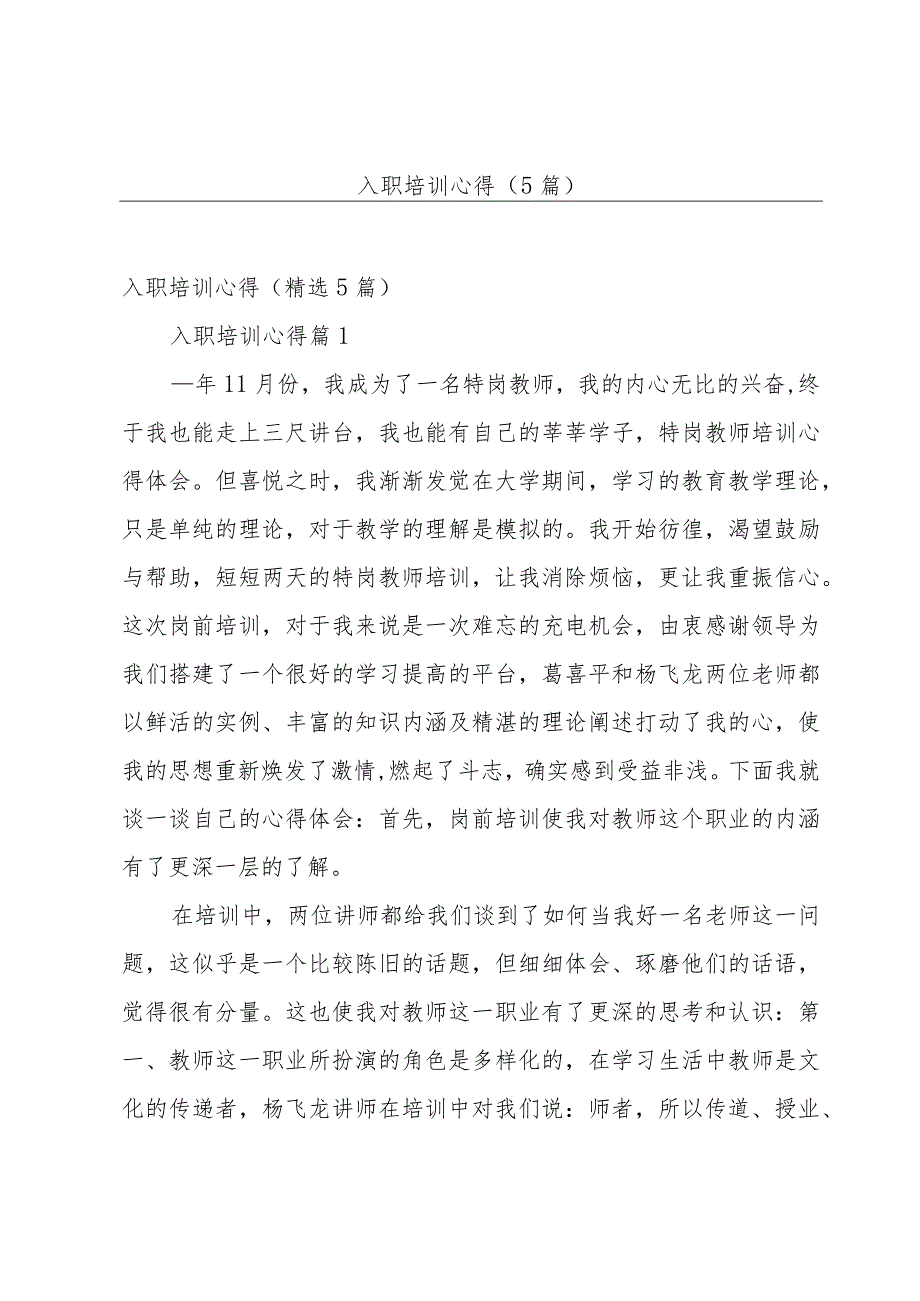 入职培训心得（5 篇）
入职培训心得（精选 5 篇）
入职培训心得篇 1
—年 11 月份，我成为了一名特岗教师，我的内心无比的兴奋,终
于我也能走上三尺讲台，我也能有自己的莘莘学子，特岗教师培训心
得体会。但喜悦之时，我渐渐发觉在大学期间，学习的教育教学理论，
只是单纯的理论，对于教学的理解是模拟的。我开始彷徨，渴望鼓励
与帮助，短短两天的特岗教师培训，让我消除烦恼，更让我重振信心。
这次岗前培训，对于我来说是一次难忘的充电机会，由衷感谢领导为
我们搭建了一个很好的学习提高的平台，葛喜平和杨飞龙两位老师都
以鲜活的实例、丰富的知识内涵及精湛的理论阐述打动了我的心，使
我的思想重新焕发了激情,燃起了斗志，确实感到受益非浅。下面我就
谈一谈自己的心得体会：首先，岗前培训使我对教师这个职业的内涵
有了更深一层的了解。
在培训中，两位讲师都给我们谈到了如何当我好一名老师这一问
题，这似乎是一个比较陈旧的话题，但细细体会、琢磨他们的话语，
觉得很有分量。这也使我对教师这一职业有了更深的思考和认识：第
一、教师这一职业所扮演的角色是多样化的，在学习生活中教师是文
化的传递者，杨飞龙讲师在培训中对我们说：师者，所以传道、授业、